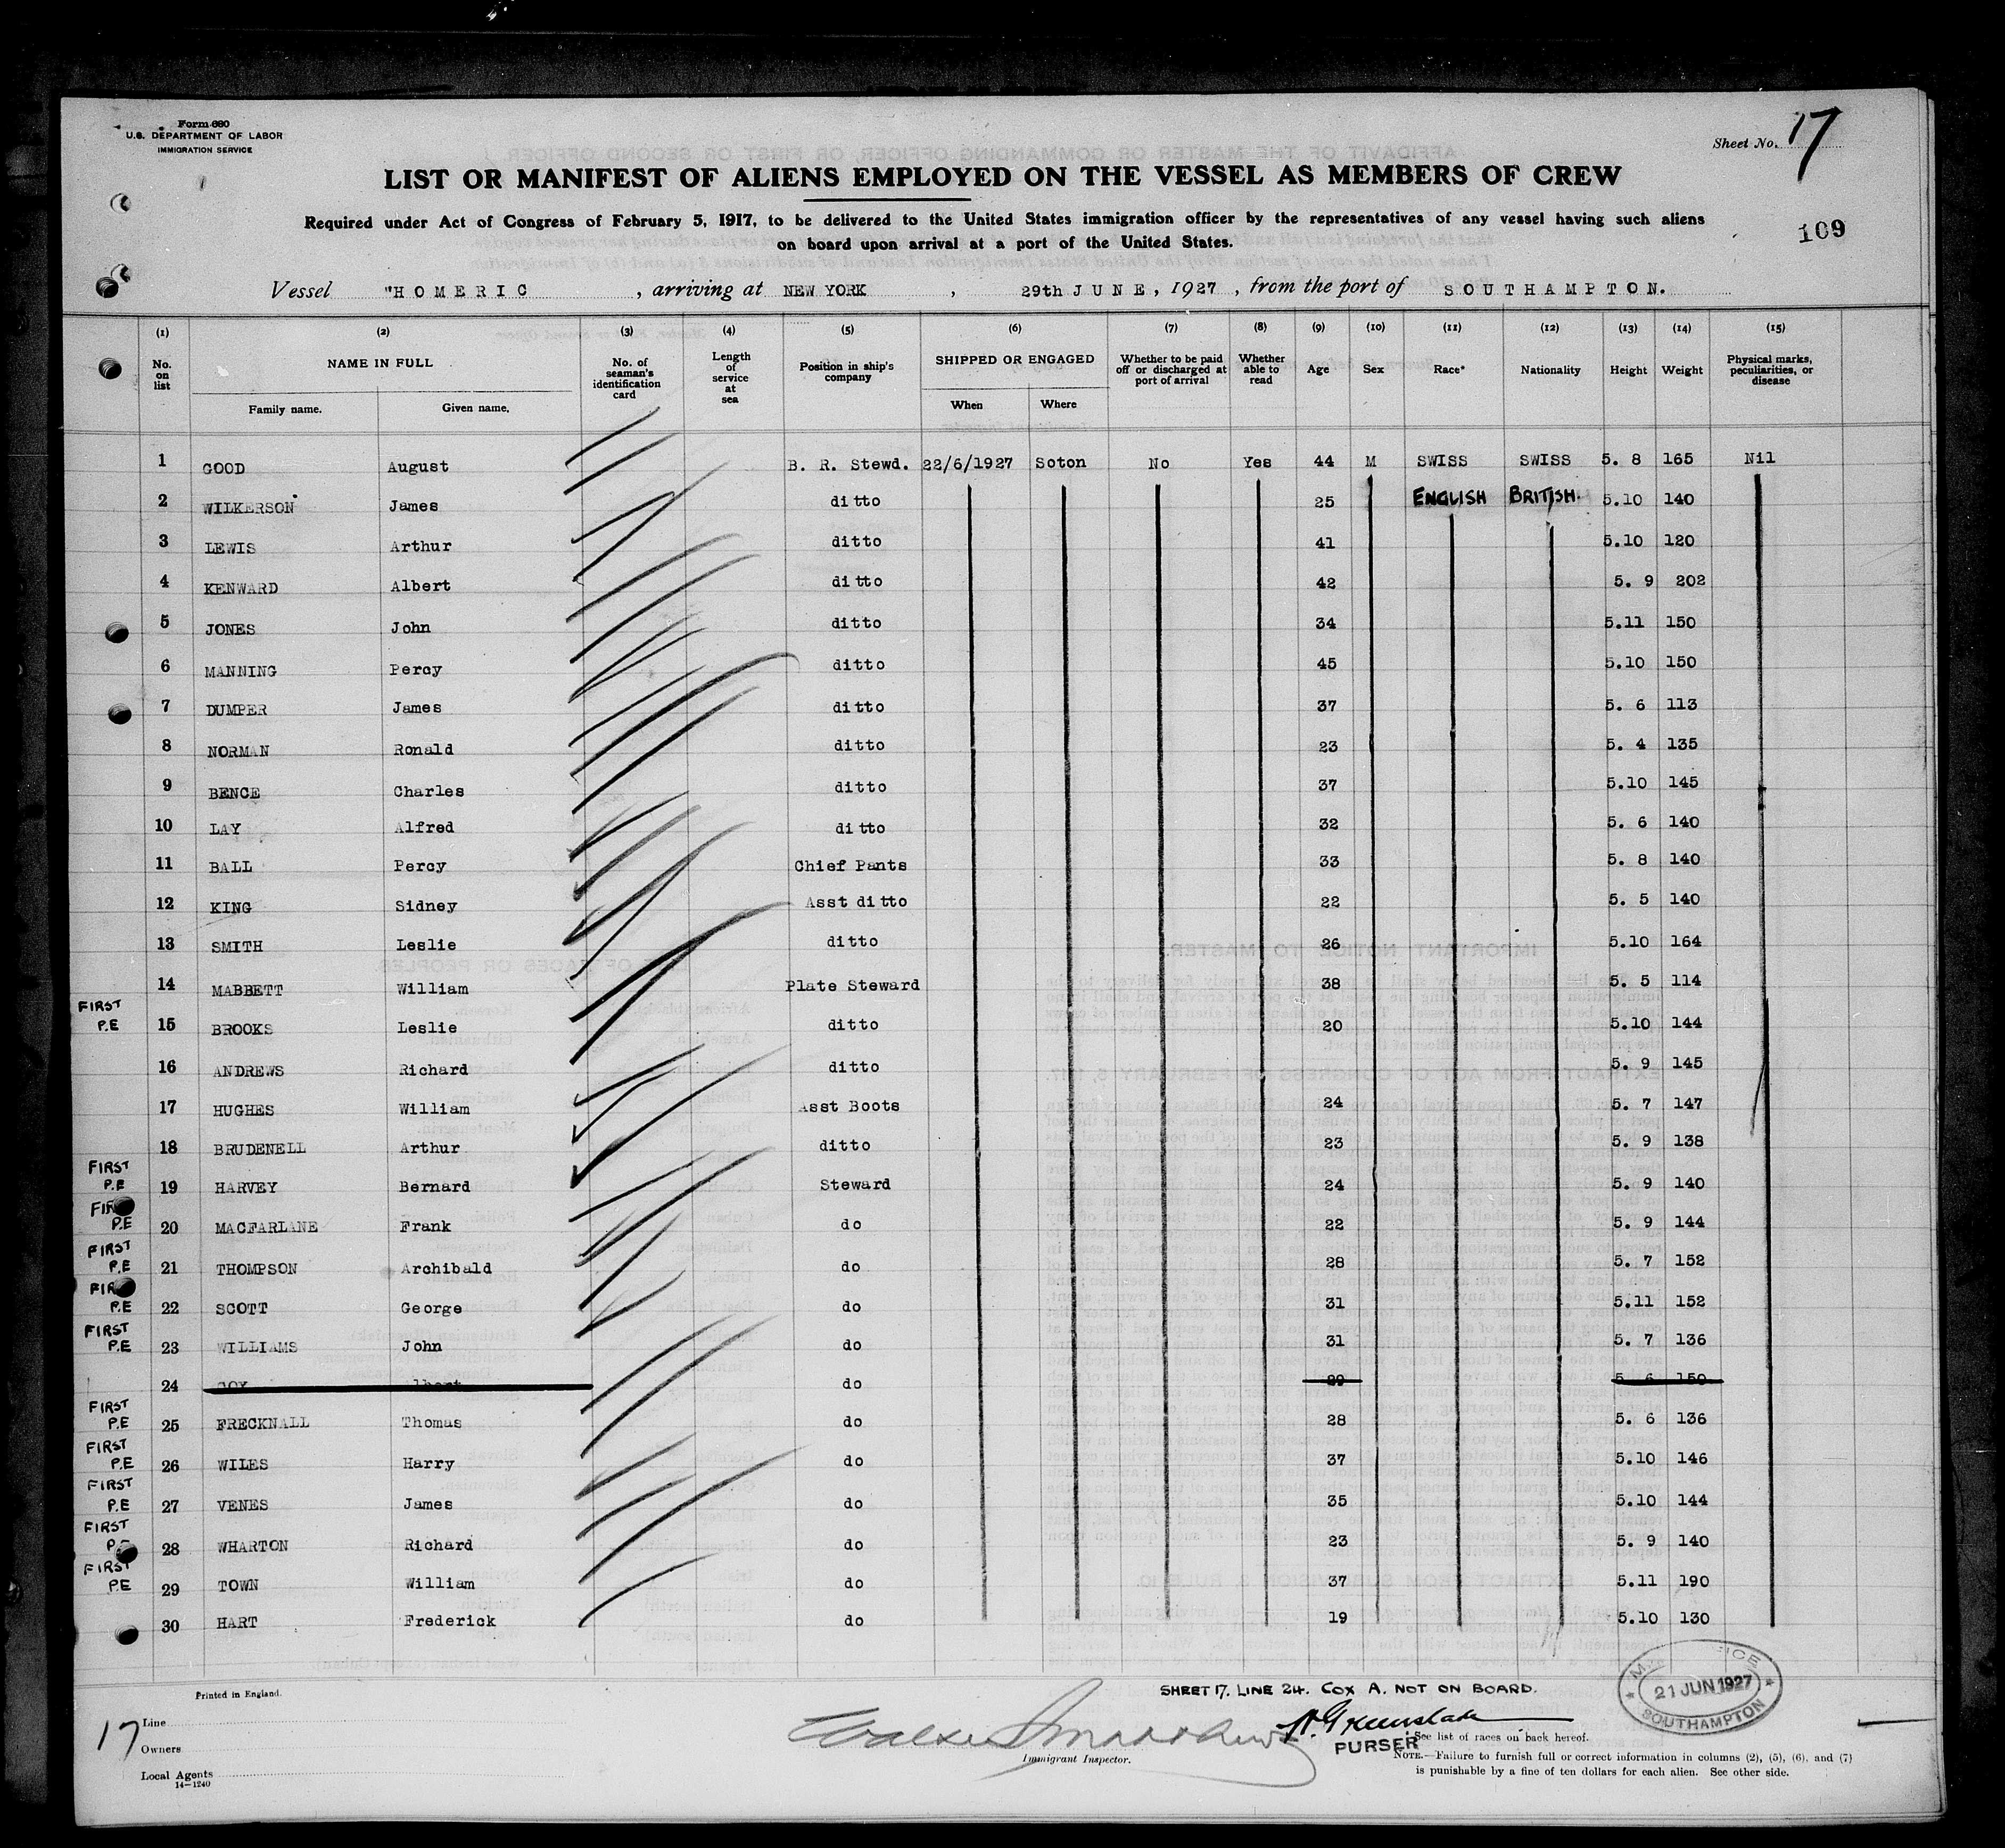 Form 680
U.S. DEPARTMENT OF LABOR
IMMIGRATION SERVICE
Sheet No. 17
LIST OR MANIFEST OF ALIENS EMPLOYED ON THE VESSEL AS MEMBERS OF CREW
Required under Act of Congress of February 5, 1917, to be delivered to the United States immigration officer by the representatives of any vessel having such aliens
on board upon arrival at a port of the United States.
109
Vessel "HOMERIC , arriving at NEW YORK , 29th JUNE, 1927 , from the port of SOUTHAMPTON.
(1) (2) (3) (4) (5) (6) (7) (8) (9) (10) (11) (12) (13) (14) (15)
No. on list NAME IN FULL No. of seaman's identification card Length of service at sea Position in ship's company SHIPPED OR ENGAGED Whether to be paid off or discharged at port of arrival Whether able to read Age Sex Race* Nationality Height Weight Physical marks, peculiarities, or disease
Family name. Given name. When Where
1 GOOD August B. R. Stewd. 22/6/1927 Soton No Yes 44 M SWISS SWISS 5. 8 165 Nil
2 WILKERSON James ditto 25 ENGLISH BRITISH. 5.10 140
3 LEWIS Arthur ditto 41 5.10 120
4 KENWARD Albert ditto 42 5. 9 202
5 JONES John ditto 34 5.11 150
6 MANNING Percy ditto 45 5.10 150
7 DUMPER James ditto 37 5. 6 113
8 NORMAN Ronald ditto 23 5. 4 135
9 BENCE Charles ditto 37 5.10 145
10 LAY Alfred ditto 32 5. 6 140
11 BALL Percy Chief Pants 33 5. 8 140
12 KING Sidney Asst ditto 22 5. 5 140
13 SMITH Leslie ditto 26 5.10 164
14 MABBETT William Plate Steward 38 5. 5 114
FIRST P.E 15 BROOKS Leslie ditto 20 5.10 144
16 ANDREWS Richard ditto 5. 9 145
17 HUGHES William Asst Boots 24 5. 7 147
18 BRUDENELL Arthur ditto 23 5. 9 138
FIRST P.E 19 HARVEY Bernard Steward 24 5. 9 140
FIRST P.E 20 MACFARLANE Frank do 22 5. 9 144
FIRST P.E 21 THOMPSON Archibald do 28 5. 7 152
FIRST P.E 22 SCOTT George do 31 5.11 152
FIRST P.E 23 WILLIAMS John do 31 5. 7 136
24 COX Albert do 29 5. 6 150
FIRST P.E 25 FRECKNALL Thomas do 28 5. 6 136
FIRST P.E 26 WILES Harry do 37 5.10 146
FIRST P.E 27 VENES James do 35 5.10 144
FIRST P.E 28 WHARTON Richard do 23 5. 9 140
FIRST P.E 29 TOWN William do 37 5.11 190
30 HART Frederick do 19 5.10 130
Printed in England.
SHEET 17. LINE 24. COX A. NOT ON BOARD.
21 JUN 1927
SOUTHAMPTON
17
Line
Owners
Local Agents
14—1240
Immigrant Inspector.
PURSER
*See list of races on back hereof.
NOTE.—Failure to furnish full or correct information in columns (2), (5), (6), and (7)
is punishable by a fine of ten dollars for each alien. See other side.